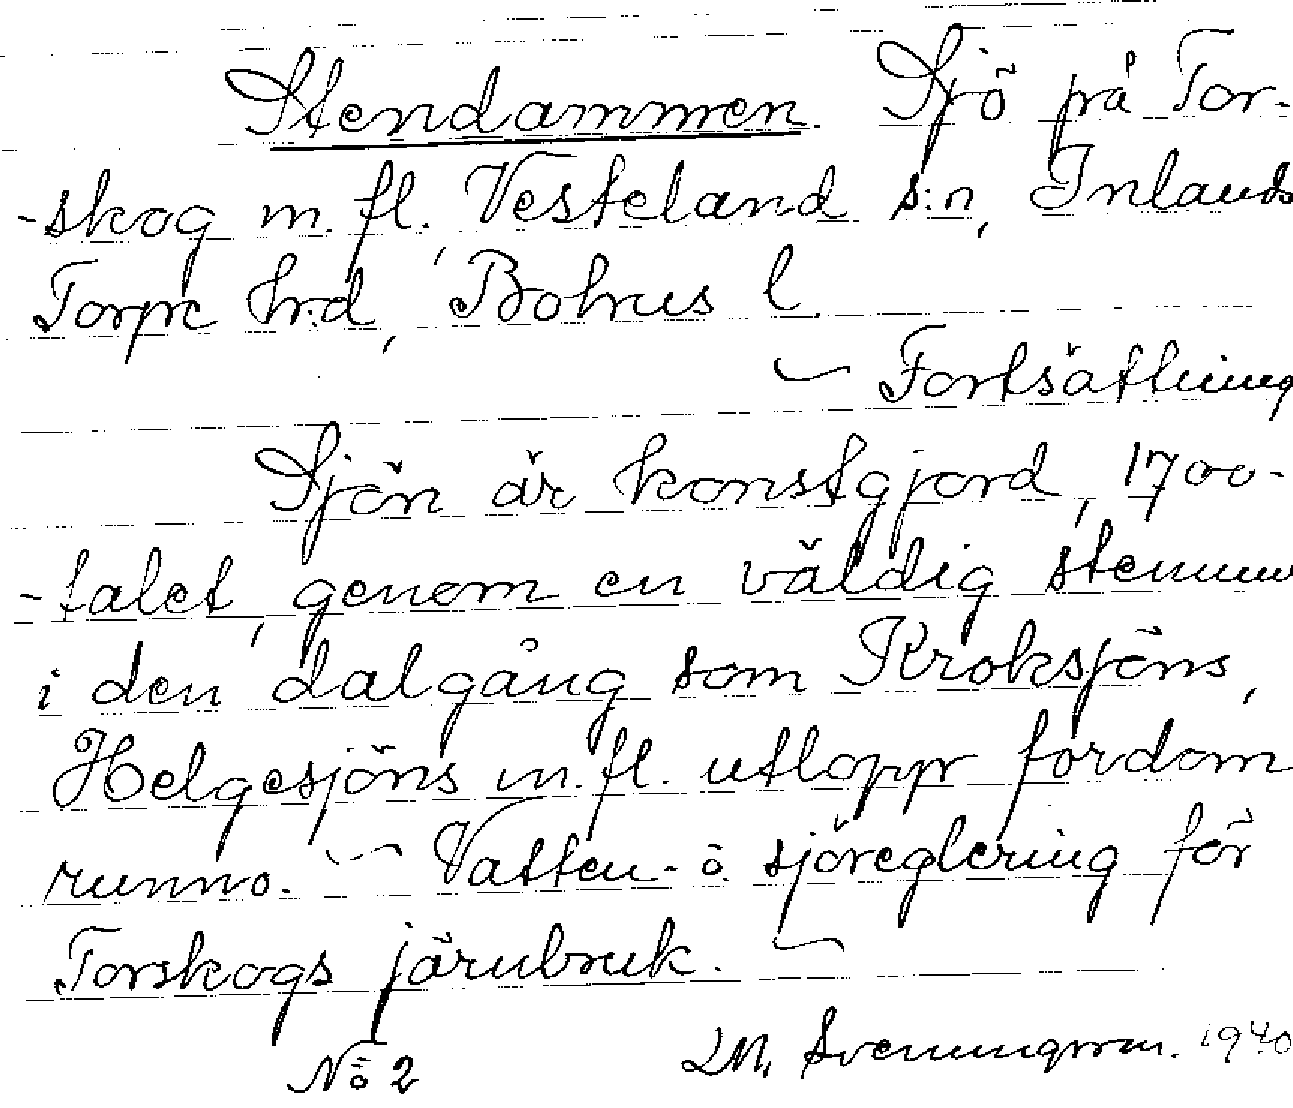 Stendammen. Sjö på Tor-
-skog m. fl. Vesteland s:n, Inlands
Torpe hr:d, Bohus l.
~ Fortsättning
Sjön är konstgjord, 1700-
-talet, genom en väldig stenmur
i den dalgång som Kroksjöns,
Helgesjöns m. fl. utlopp fordom
runno. ~ Vatten- o. sjöreglering för
Torskogs järnbruk. ~
No 2 LM. Svenungsson. 1940